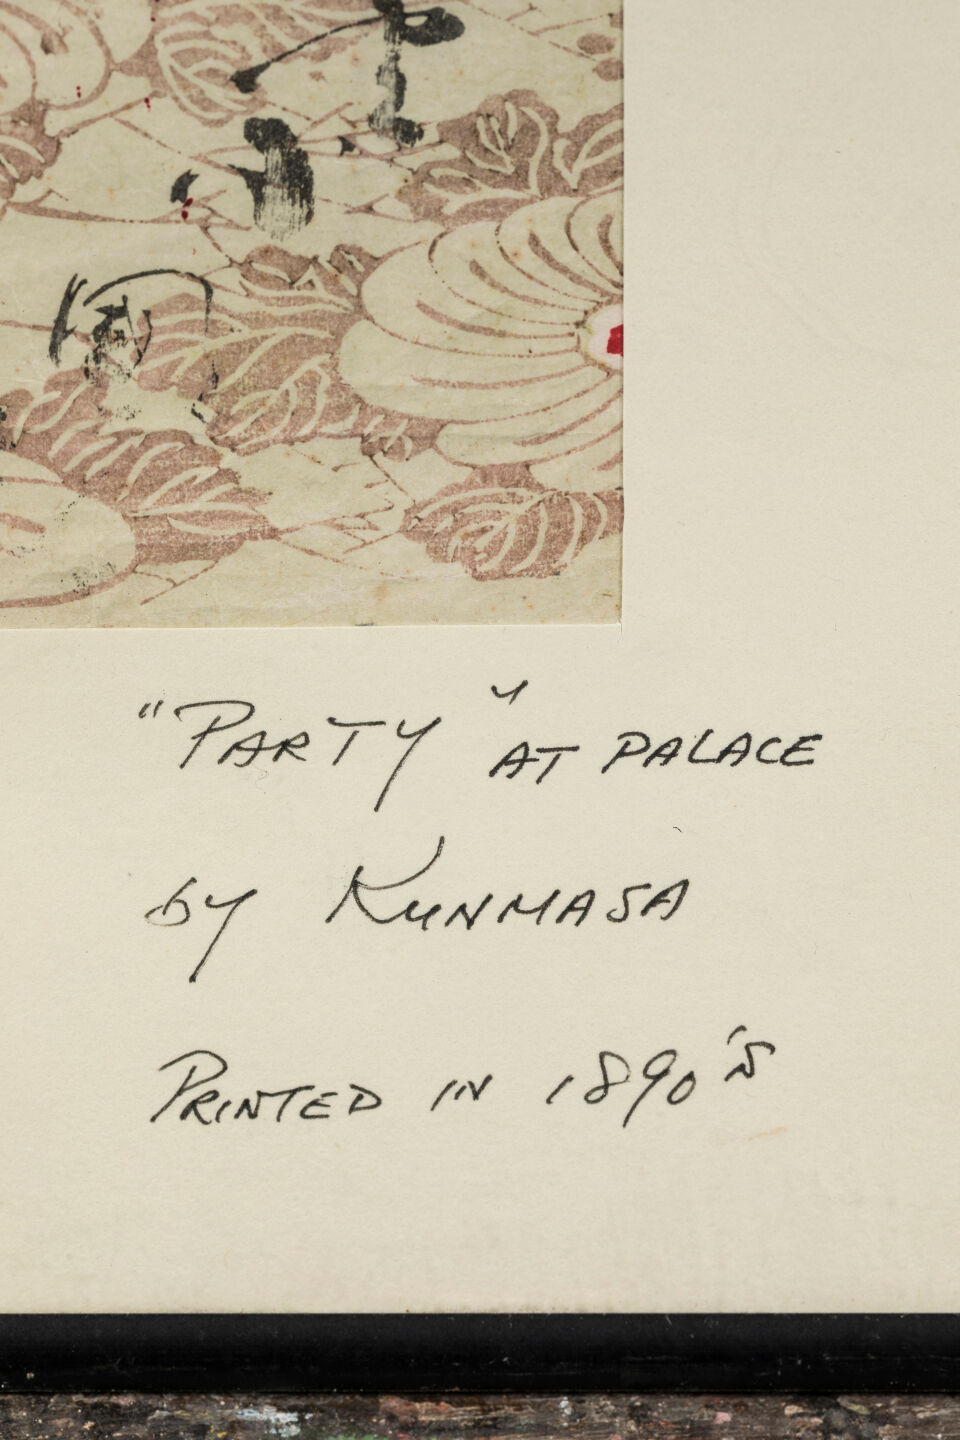 "PARTY" AT PALACE
by KUNMASA
PRINTED IN 1890'S